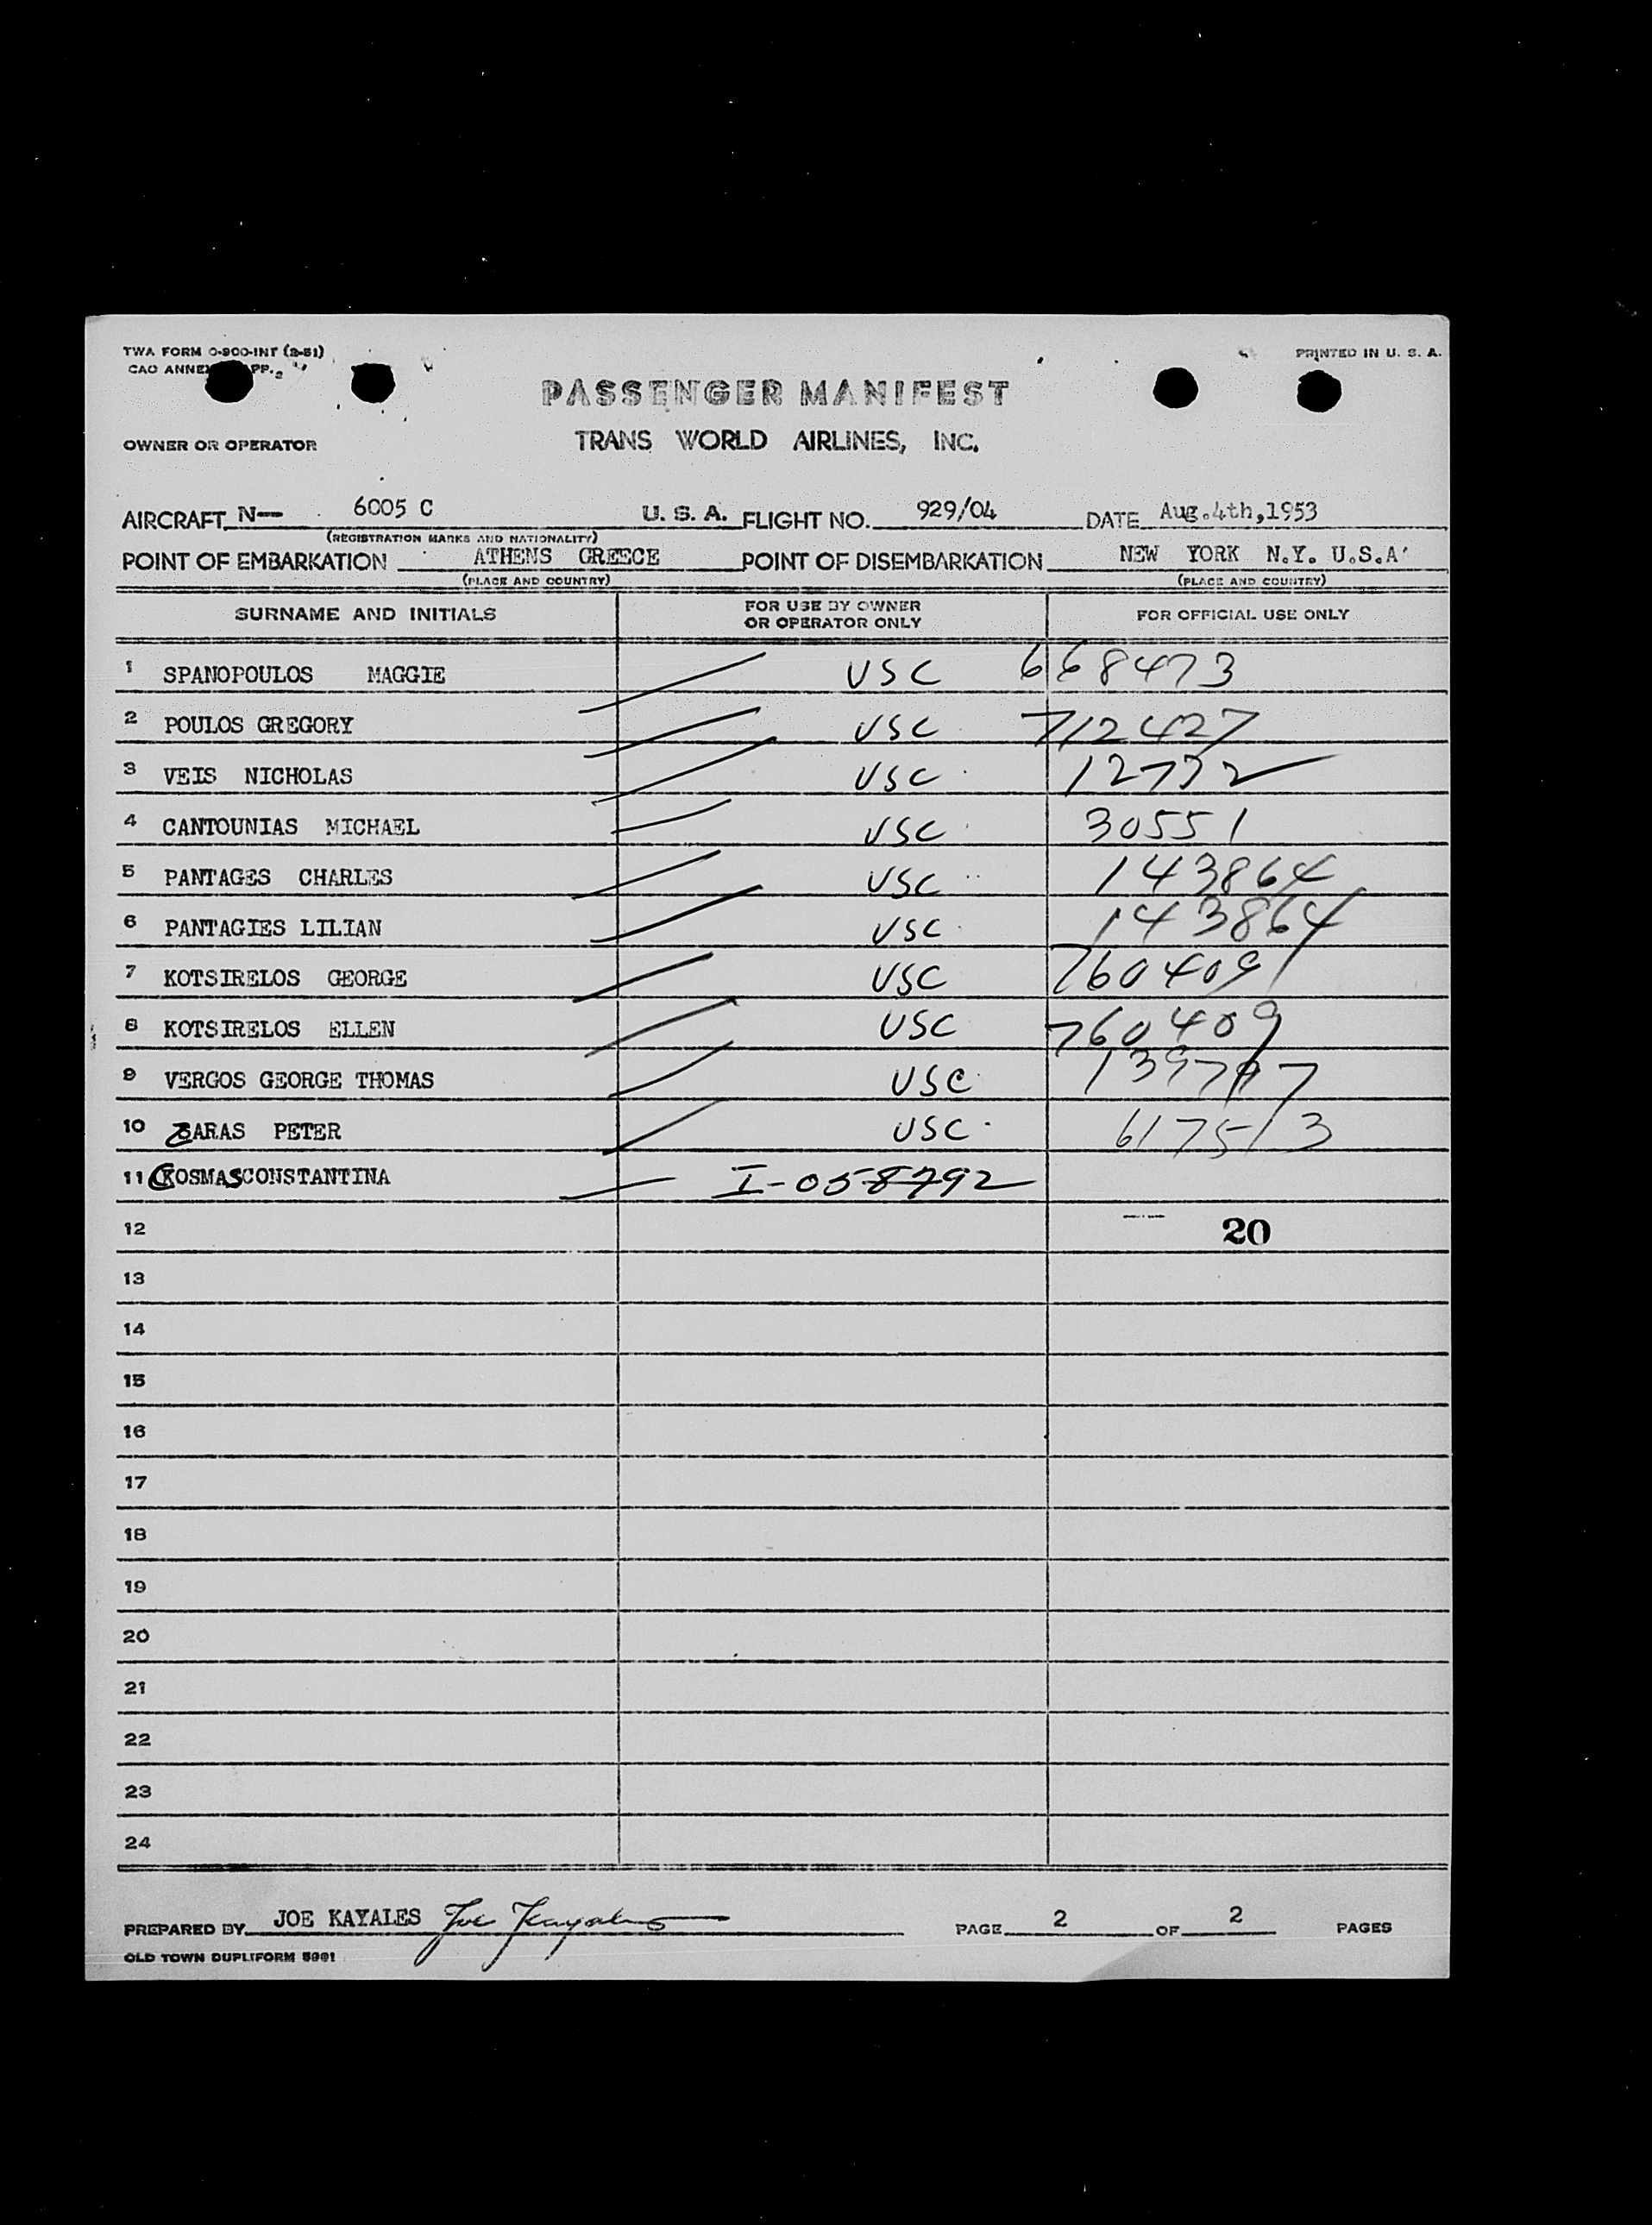 TWA FORM O-900-INT (2-51)
PRINTED IN U. S. A.
CAO ANNEX APP. 2
PASSENGER MANIFEST
OWNER OR OPERATOR TRANS WORLD AIRLINES, INC.
AIRCRAFT N— 6005 C U. S. A. FLIGHT NO. 929/04 DATE Aug.4th,1953
(REGISTRATION MARKS AND NATIONALITY)
POINT OF EMBARKATION ATHENS GREECE POINT OF DISEMBARKATION NEW YORK N.Y. U.S.A'
(PLACE AND COUNTRY) (PLACE AND COUNTRY)
SURNAME AND INITIALS FOR USE BY OWNER OR OPERATOR ONLY FOR OFFICIAL USE ONLY
1 SPANOPOULOS MAGGIE USC 668473
2 POULOS GREGORY USC 712427
3 VEIS NICHOLAS USC 12772
4 CANTOUNIAS MICHAEL USC 30551
5 PANTAGES CHARLES USC 143864
6 PANTAGIES LILIAN USC 143864
7 KOTSIRELOS GEORGE USC 760409
8 KOTSIRELOS ELLEN USC 760409
9 VERGOS GEORGE THOMAS USC
10 ZARAS PETER USC 617513
11 COSMAS CONSTANTINA I-058792
12 20
13
14
15
16
17
18
19
20
21
22
23
24
PREPARED BY JOE KAYALES Joe Kayales PAGE 2 OF 2 PAGES
OLD TOWN DUPLIFORM 5991